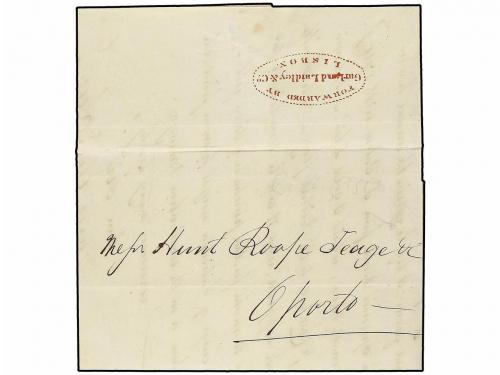 FORWARDED BY
Garland Laidley & Co
LISBON.
Messrs Hunt Roope Teage & Co
Oporto